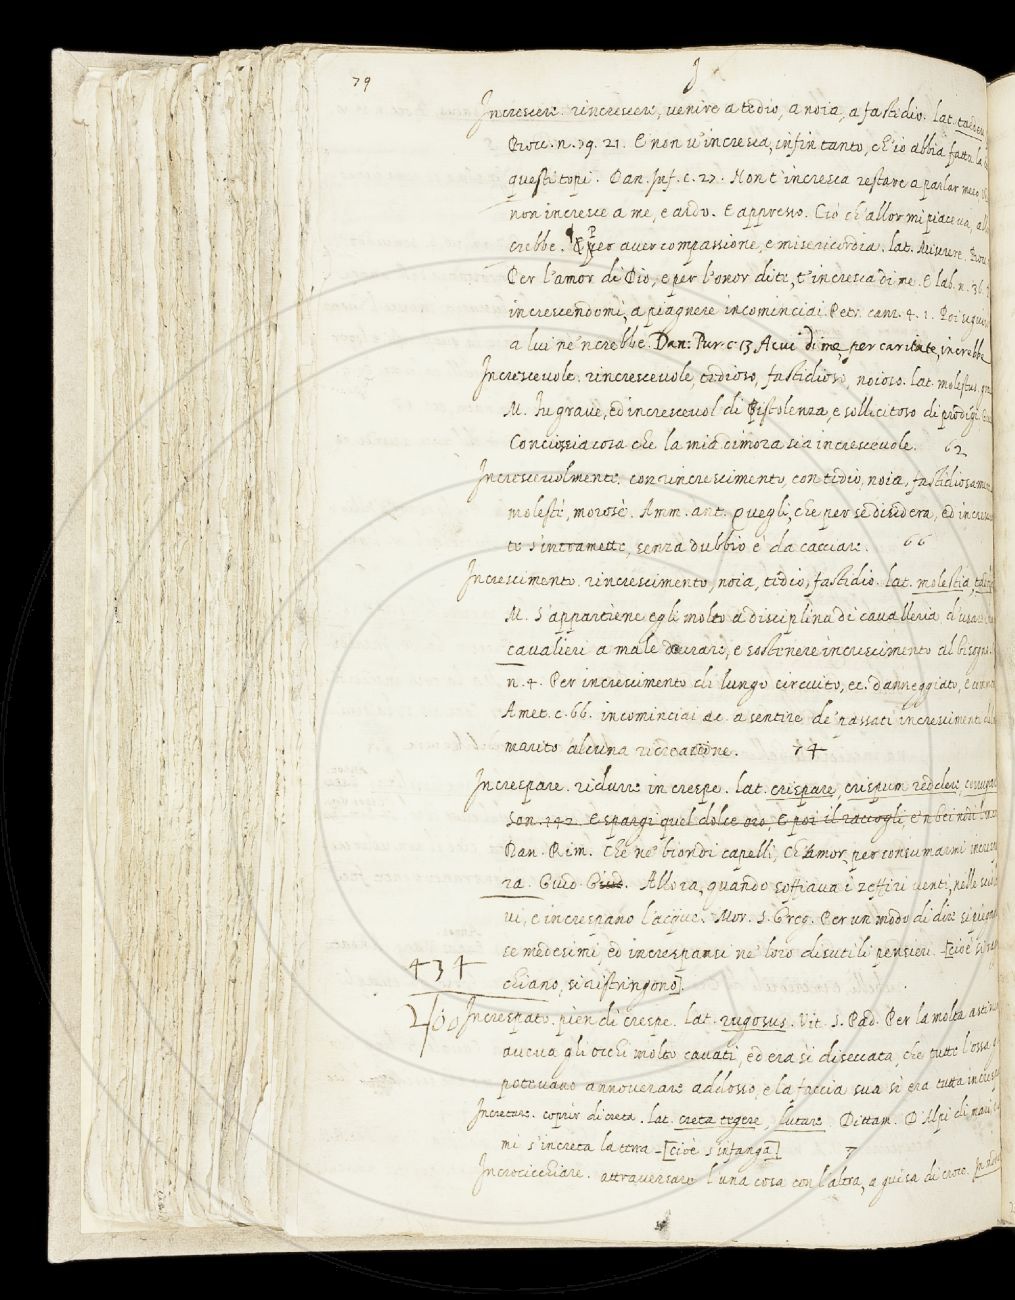 79
I
Increscere. rincrescere, venire a tedio, a noia, a fastidio. Lat. taedere
Bocc. n. 79. 21. E non v'incresca, infin tanto, ch'io abbia fatta la
questi topi. Dan. Inf. c. 27. Non t'incresca restare a parlar meco
non incresce a me, e ardo. E appresso. Ciò ch'allor mi piaceva,
crebbe. P per aver compassione, e misericordia. lat. Miserere.
Per l'amor di Dio, e per l'onor di te, t'incresca di me. E lab. n. 36.
increscendomi, a piagnere incominciai. Petr. canz. 4. 1. Poi seguirò
a lui ne'ncrebbe. Dan: Pur. c. 13 A cui di me, per caritate, increbbe
Increscevole. rincrescevole, tedioso, fastidioso, noioso. lat. molestus,
M. In grave, ed increscevol di Pistolenza, e sollicitoso di prodigi.
Conciossiacosa che la mia dimora sia increscevole. 62
Increscevolmente. con rincrescimento, con tedio, noia, fastidiosamente
molestè, morosè. Amm. ant. Quegli, che per se disidera, ed increscevolmen
te s'intramette, senza dubbio è da cacciare. 66
Increscimento. rincrescimento, noia, tedio, fastidio. lat. molestia,
M. S'appartiene egli molto a disciplina di cavalleria d'usare
cavalieri a male durare, e sostenere increscimento al bisogno.
n. 4. Per increscimento di lungo circuito, ec. danneggiato, e
Amet. c. 66. incominciai ac a sentire de' passati increscimenti
marito alcuna ricreazione. 74
Increspare. ridurre in crespe. lat. crispare, crispum reddere, corrugare
Son. 192. E spargi quel dolce oro, E poi il raccogli, e'n bei nodi
Dan. Rim. Che ne' biondi capelli, Ch'Amor, per consumarmi increspa
ra. Guid. G. Allora, quando soffiava i zeffiri venti, nelle
vi, e increspano l'acque. Mor. S. Greg. Per un modo di dire si piegano
se medesimi, ed increspansi ne' loro disutili pensieri -[cioè si ran
chiano, si ristringono].
434
400
Increspato. pien di crespe. lat. rugosus. Vit. S. Pad. Per la molta astinenza
aveva gli occhi molto cavati, ed era sì diseccata, che tutte l'ossa
potevano annoverare addosso, e la faccia sua si era tutta increspata
Incretare. coprir di creta. lat. creta tegere, lutare. Dittam. D'Alpi di mari
mi s'increta la terra -[cioè s'infanga] 7
Incrocicchiare. attraversare l'una cosa con l'altra, a guisa di croce.